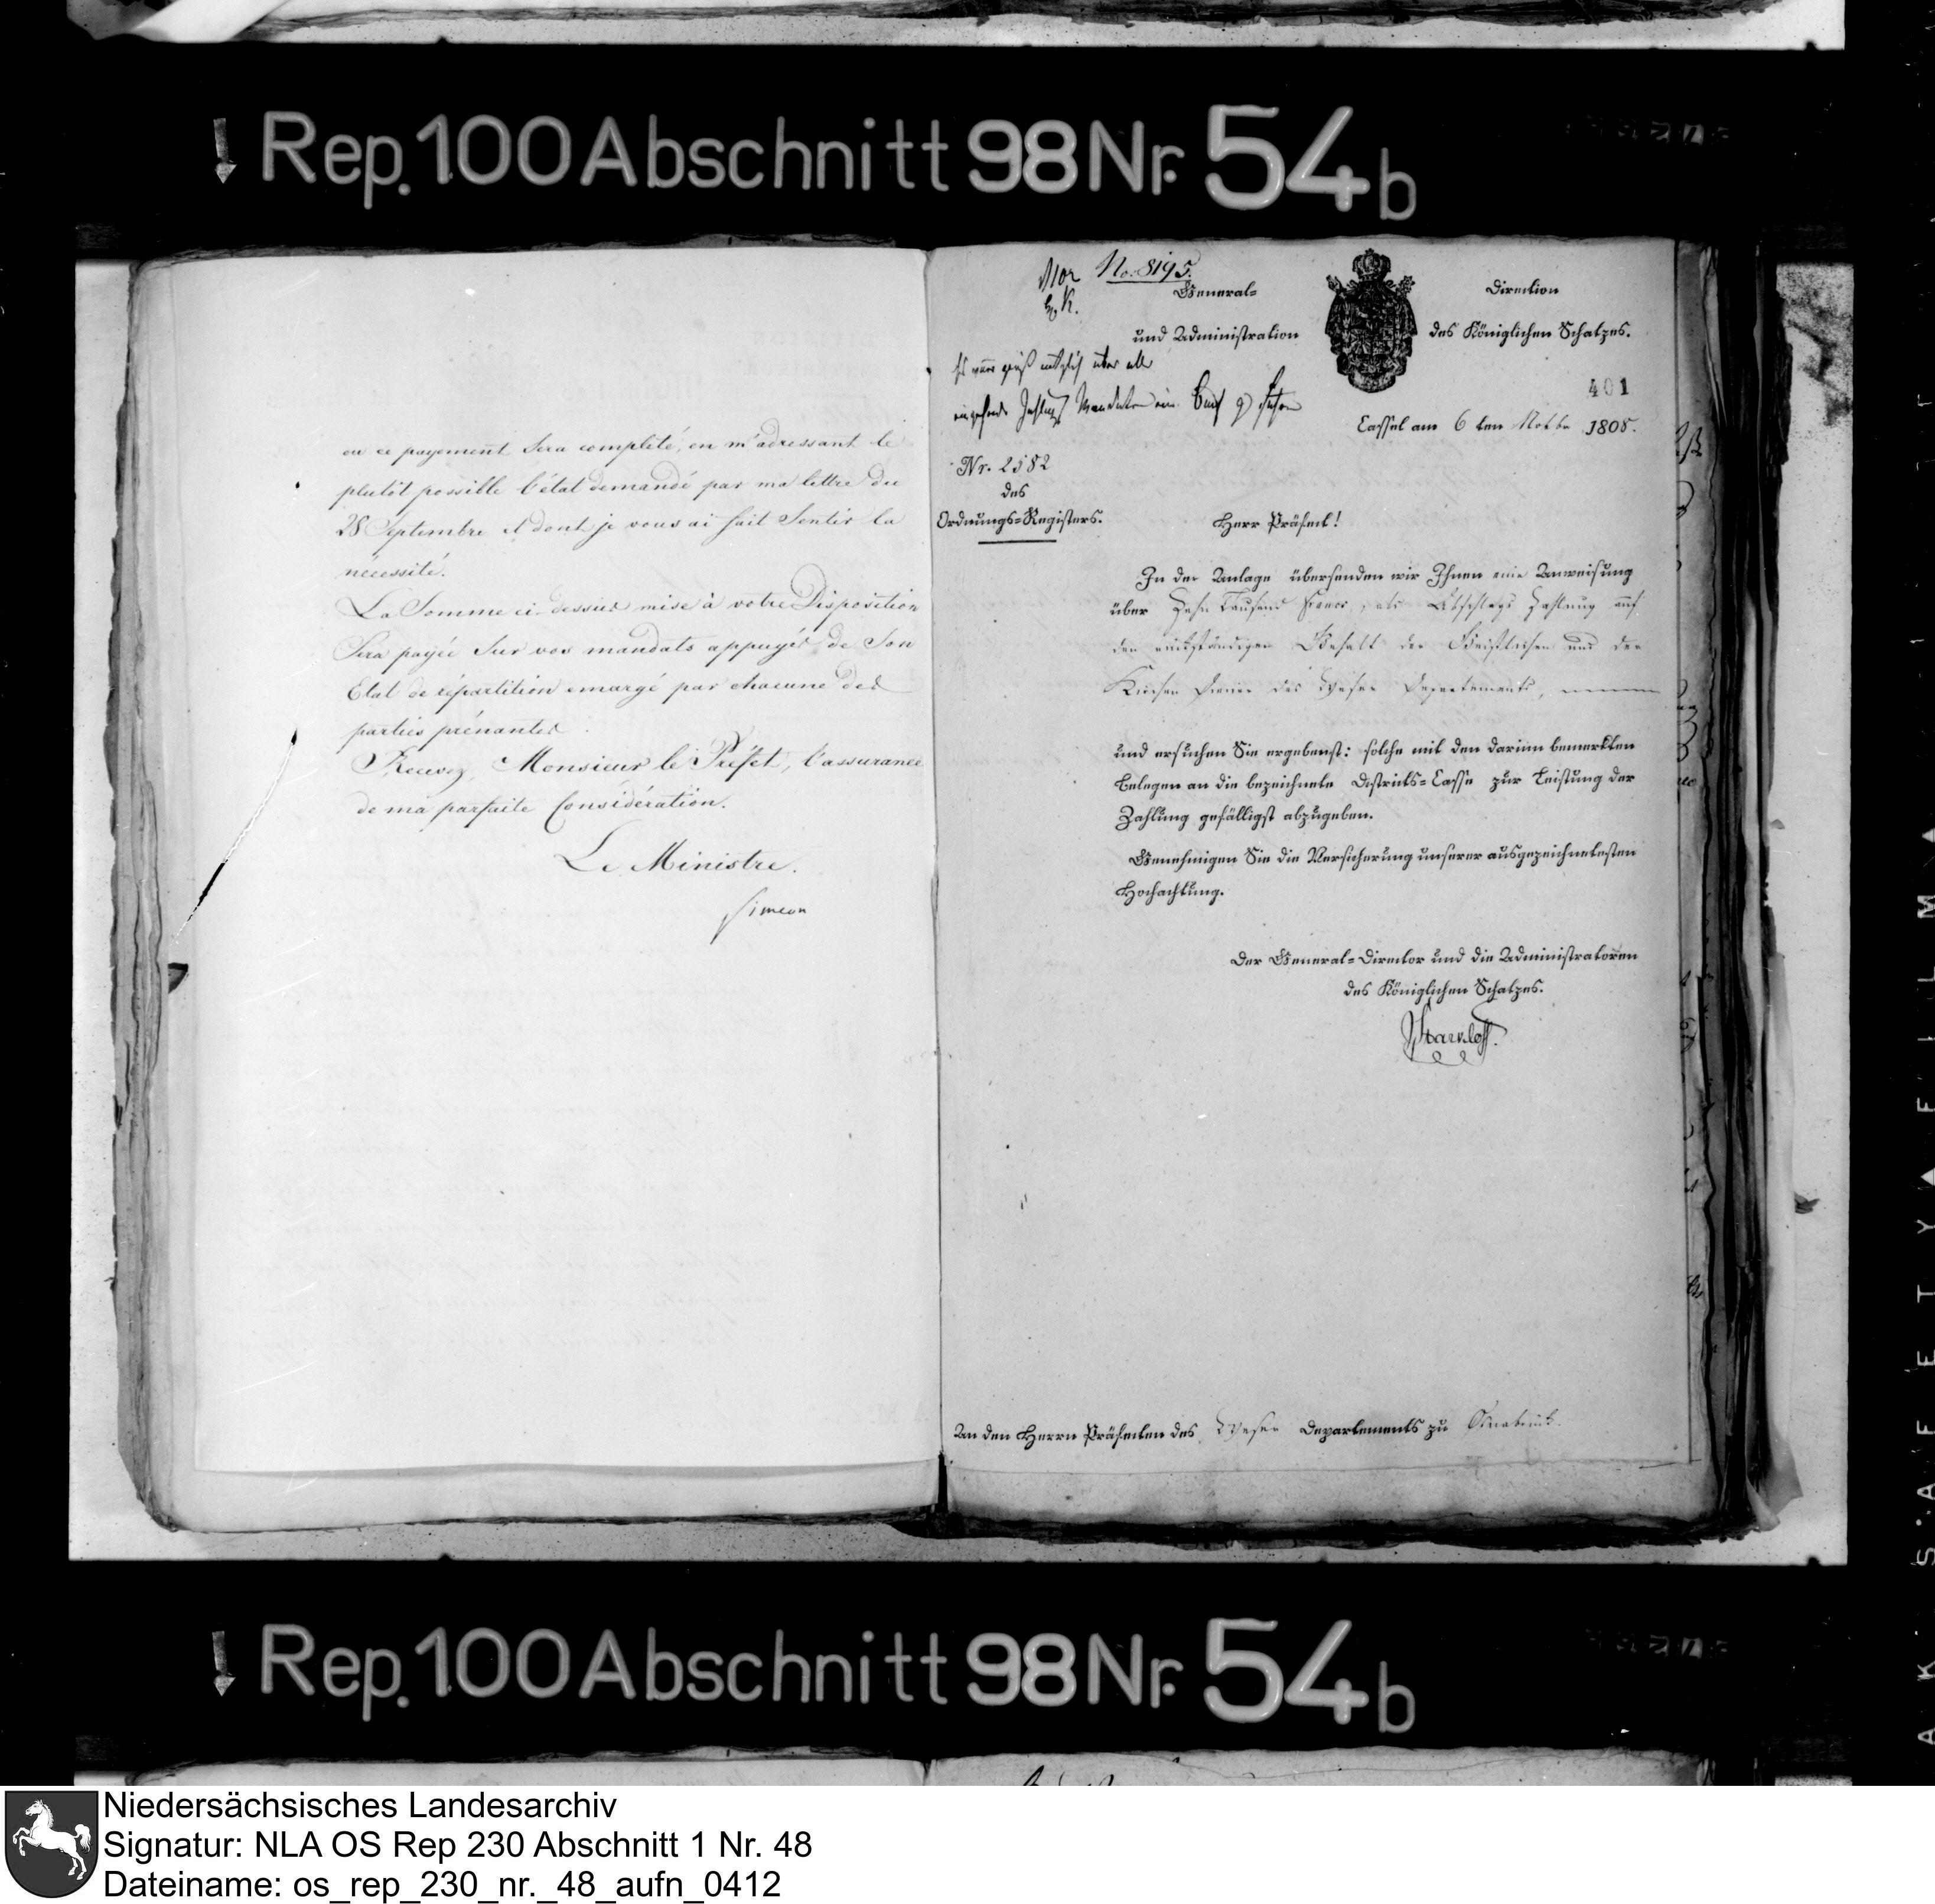 Rep. 100 Abschnitt 98 Nr. 54b
ou ce payement sera complété, en m'adressant le
plutôt possible l'état demandé par ma lettre du
28 Septembre et dont je vous ai fait sentir la
nécessité.
La Somme ci-dessus mise à votre Disposition
Sera payée Sur vos mandats appuyés de Son
Etat de répartition emargé par chacune des
parties prénantes
Recevez, Monsieur le Préfet, l'assurance
de ma parfaite Considération.
Le Ministre.
Simeon
No. 8195.
General- Direction
und Administration des Königlichen Schatzes.
401
Cassel am 6 ten Novbr 1808.
Nr. 2582
des
Ordnungs-Registers.
Herr Präfect!
In der Anlage übersenden wir Ihnen eine Anweisung
über Zehn Tausend Francs, als Abschlags Zahlung auf
den rückständigen Gehalt der Geistlichen und der
Kirchen Diener des Weser Departements,
und ersuchen Sie ergebenst: solche mit den darinn bemerkten
Belegen an die bezeichnete Districts-Casse zur Leistung der
Zahlung gefälligst abzugeben.
Genehmigen Sie die Versicherung unserer ausgezeichnetesten
Hochachtung.
Der General-Director und die Administratoren
des Königlichen Schatzes.
An den Herrn Präfecten des Weser Departements zu Osnabrück.
Rep. 100 Abschnitt 98 Nr. 54b
Niedersächsisches Landesarchiv
Signatur: NLA OS Rep 230 Abschnitt 1 Nr. 48
Dateiname: os_rep_230_nr._48_aufn_0412